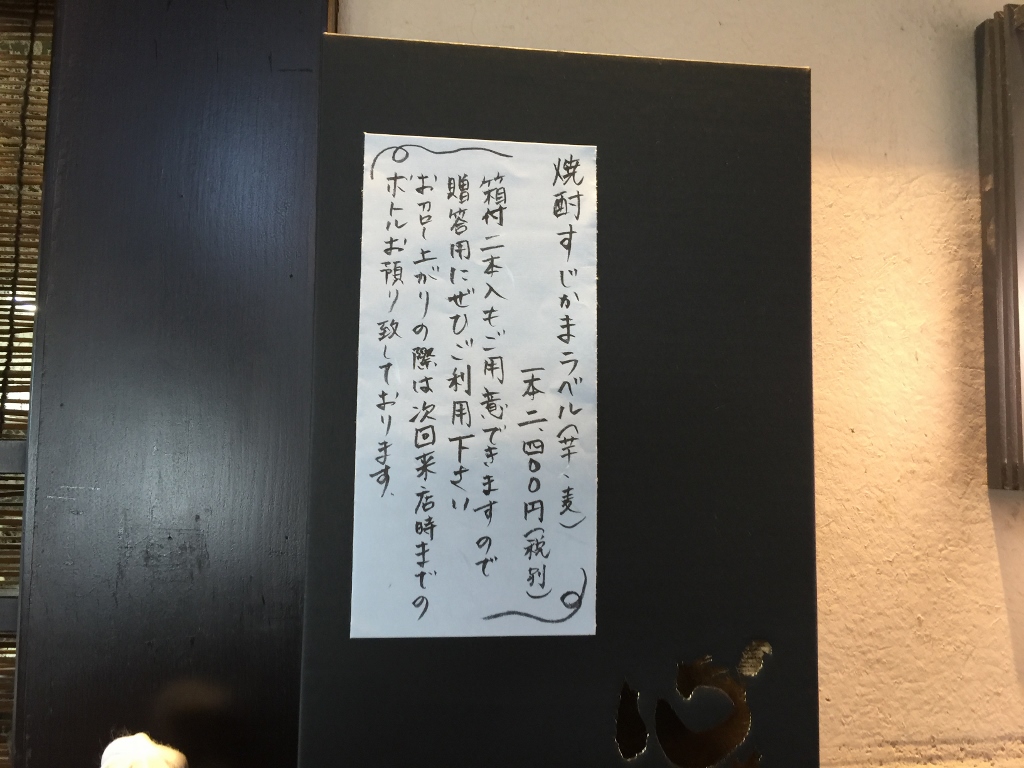 焼酎すじかまラベル(芋、麦)
一本二、四〇〇円(税別)
箱付二本入もご用意できますので
贈答用にぜひご利用下さい
お召し上がりの際は次回来店時までの
ボトルお預り致しております。
心